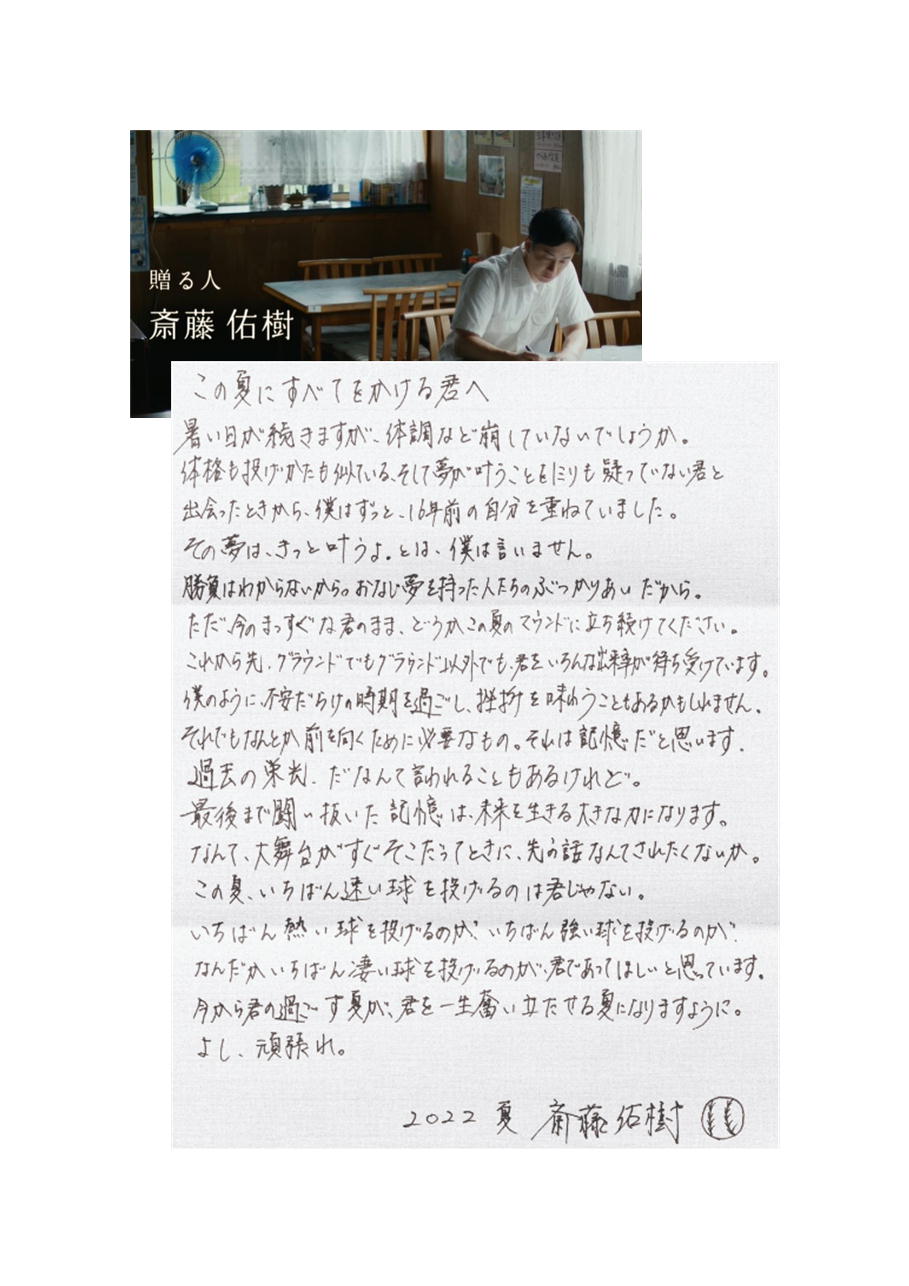 贈る人
斎藤 佑樹
この夏にすべてをかける君へ
暑い日が続きますが、体調など崩していないでしょうか。
体格も投げかたも似ている、そして夢が叶うことを1ミリも疑っていない君と
出会ったときから、僕はずっと、16年前の自分を重ねていました。
その夢は、きっと叶うよ。とは、僕は言いません。
勝負はわからないから。おなじ夢を持った人たちのぶつかりあいだから。
ただ、今のまっすぐな君のまま、どうかこの夏のマウンドに立ち続けてください。
これから先、グラウンドでもグラウンド以外でも、君をいろんな出来事が待ち受けています。
僕のように、不安だらけの時期を過ごし、挫折を味わうこともあるかもしれません。
それでもなんとか前を向くために必要なもの。それは記憶だと思います。
過去の栄光、だなんて言われることもあるけれど。
最後まで闘い抜いた記憶は、未来を生きる大きな力になります。
なんて、大舞台がすぐそこだってときに、先の話なんてされたくないか。
この夏、いちばん速い球を投げるのは君じゃない。
いちばん熱い球を投げるのか？いちばん強い球を投げるのか？
なんだかいちばん凄い球を投げるのが、君であってほしいと思っています。
今から君の過ごす夏が、君を一生奮い立たせる夏になりますように。
よし、頑張れ。
2022 夏 斎藤佑樹